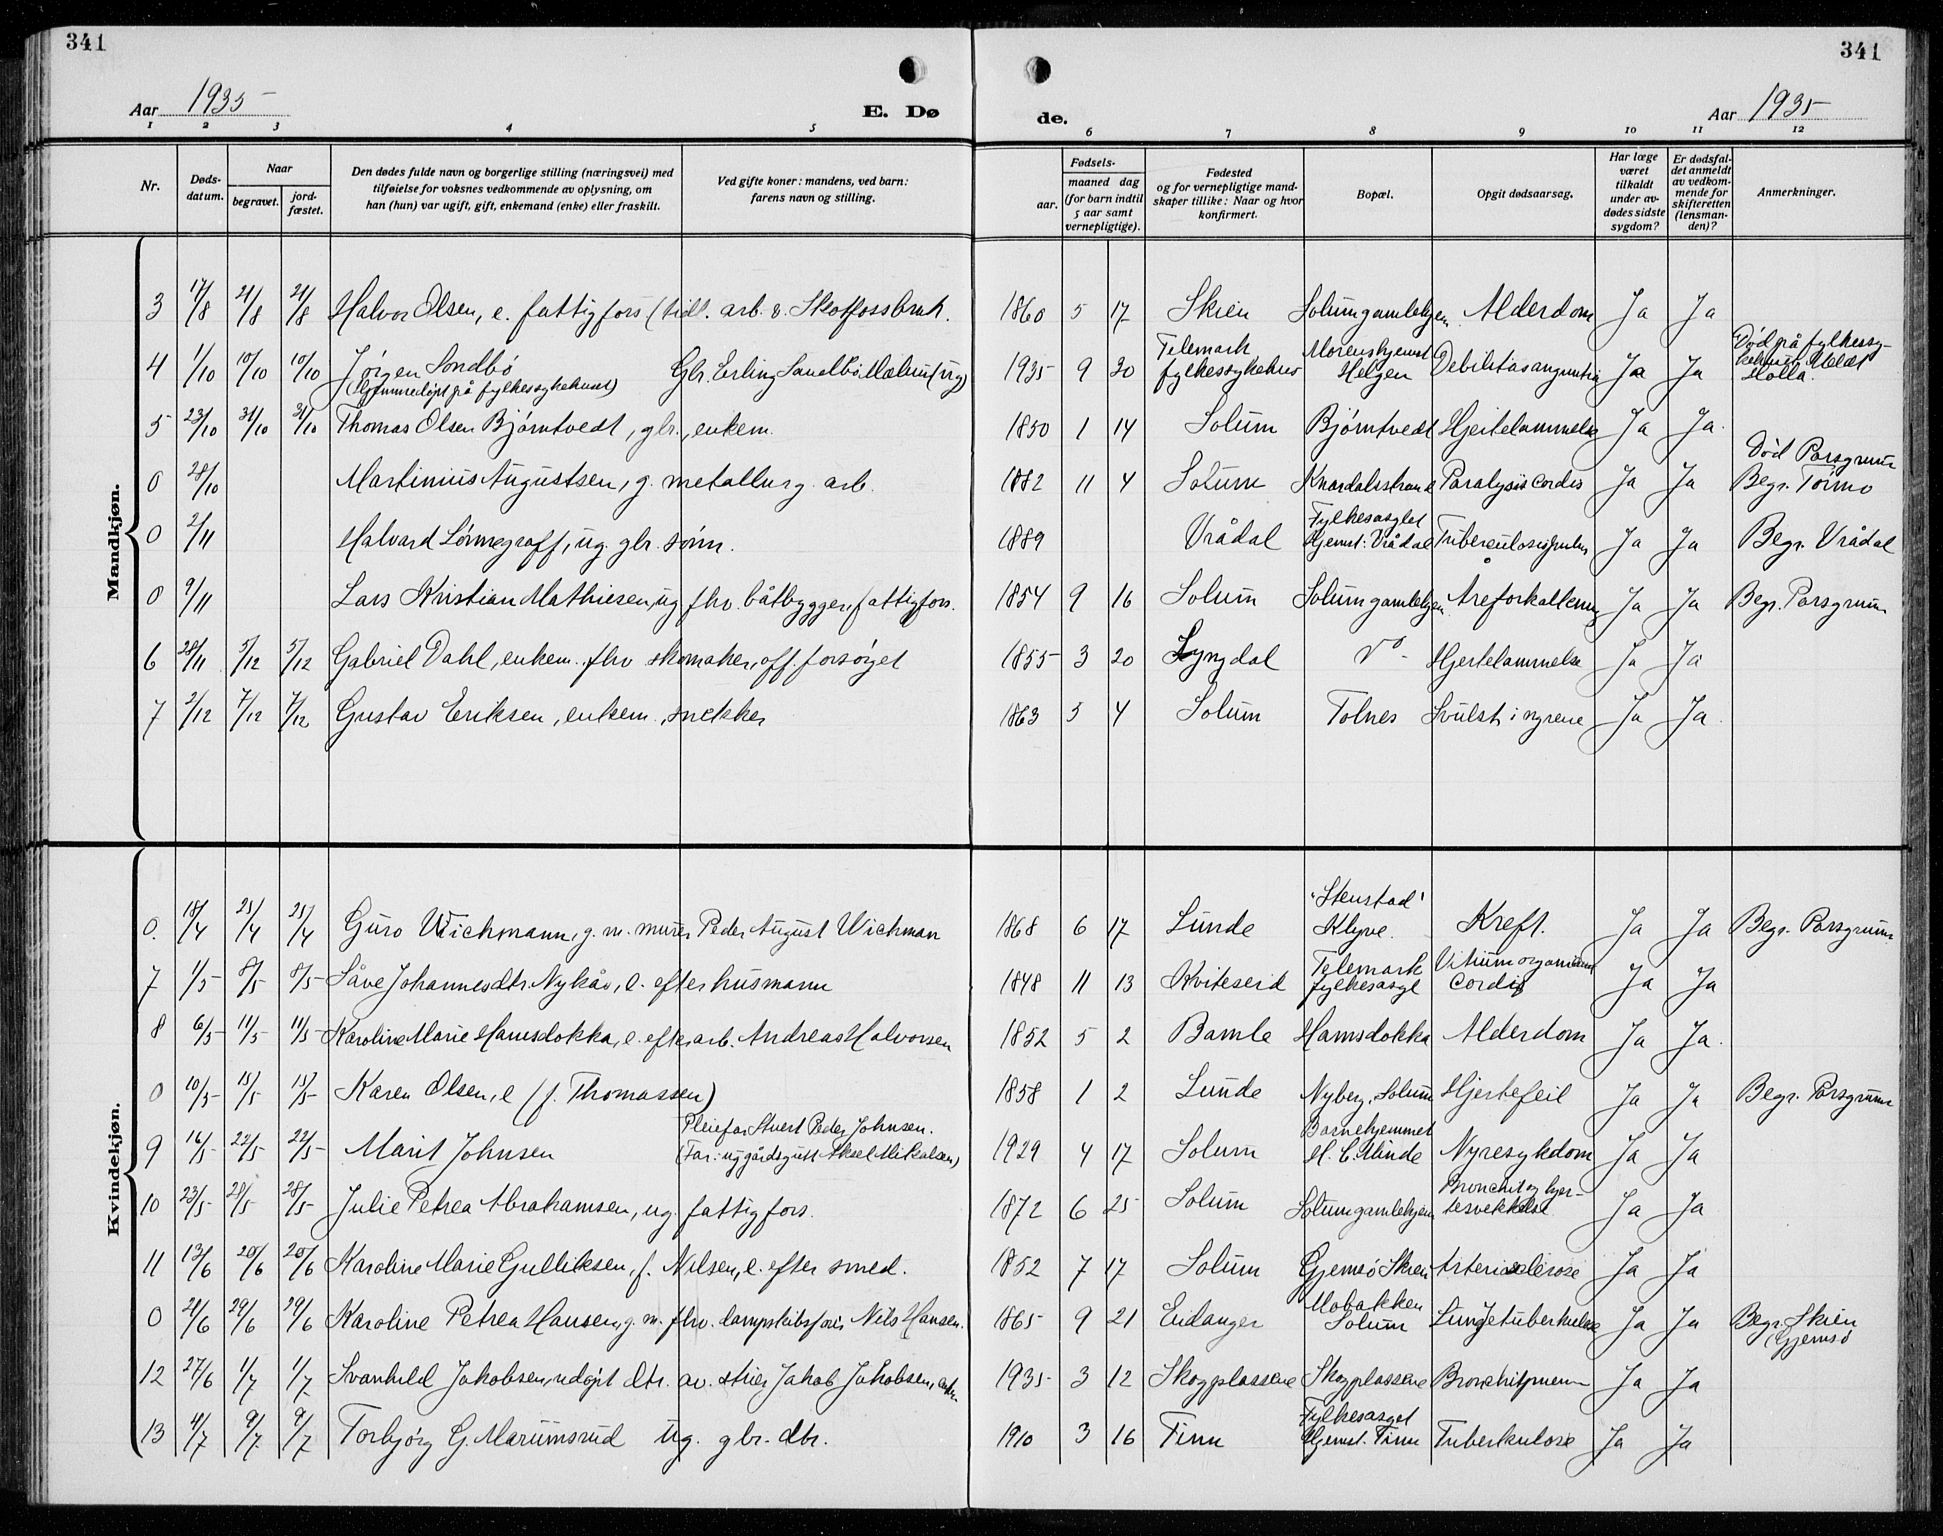 341
341
Aar 1935
E. Dø
de.
Aar 1935
1 2 3 4 5 6 7 8 9 10 11 12
Nr.
Døds-
datum.
Naar
begravet.
jord-
fæstet.
Den dødes fulde navn og borgerlige stilling (næringsvei) med
tilføielse for voksnes vedkommende av oplysning, om
han (hun) var ugift, gift, enkemand (enke) eller fraskilt.
Ved gifte koner: mandens, ved barn:
farens navn og stilling.
Fødsels-
aar.
maaned dag
(for barn indtil
5 aar samt
vernepligtige).
Fødested
og for vernepligtige mand-
skaper tillike: Naar og hvor
konfirmert.
Bopæl.
Opgit dødsaarsag.
Har læge
været
tilkaldt
under av-
dødes sidste
sygdom?
Er dødsfal-
det anmeldt
av vedkom-
mende for
skifteretten
(lensman-
den)?
Anmerkninger.
Mandkjøn.
3 17/8 21/8 21/8 Halvor Olsen, e. fattigfors. (tidl. arb. v. Skotfossbruk. 1860 5 17 Skien Solumgamlehjem Alderdom Ja Ja
4 1/10 10/10 10/10 Jørgen Sondbø Gbr. Erling (ug) 1935 9 20 Telemark fylkessykehus Helgen Ja Ja Død på fylkessy-
(Hjemmedøpt på fylkessykehuset) Holla.
5 23/10 31/10 31/10 Thomas Olsen Bjørntvedt, gbr., enkem. 1850 1 14 Solum Bjørntvedt Hjertelammelse Ja Ja
0 28/10 Martinius Augustsen, g. metallurg. arb. 1882 11 4 Solum Knardalsstrand Paralysis cordis Ja Ja Død Porsgrunn
Begr.
0 2/11 Halvard Lønnegraff, ug. gbr. sønn. 1889 Vrådal Fylkesasylet Hjemst: Vrådal Ja Ja Begr. Vrådal
0 9/11 Lars Kristian Mathiesen, ug. fhv. båtbygger, fattigfors. 1854 9 16 Solum Solumgamlehjem Åreforkalkning Ja Ja Begr. Porsgrunn
6 28/11 5/12 5/12 Gabriel Dahl, enkem. fhv skomaker, off. forsørget 1855 3 20 Lyngdal Do - Hjertelammelse Ja Ja
7 2/12 7/12 7/12 Gustav Eriksen, enkem., snekker 1863 5 4 Solum Tolnes Svulst i nyrene Ja Ja
Kvindekjøn.
0. 18/4 25/4 25/4 Guro Wichmann, g. m. murer Peder August Wichman 1868 6 17 Lunde "Stenstad" Klyve. Kreft. Ja Ja Begr. Porsgrunn
7 1/5 8/5 8/5 Såve Johannesdtr. Nykås, e. efter husmann 1848 11 13 Kviteseid Telemark fylkesasyl Vitium organicum cordis Ja Ja
8 6/5 11/5 11/5 Karoline Marie Hamsdokka, e. efter arb. Andreas Halvorsen 1852 5 2 Bamle Hamsdokka Alderdom Ja Ja.
0 10/5 15/5 15/5 Karen Olsen, e (f. Thomassen) 1858 1 2 Lunde Nyberg, Solum Hjertefeil Ja Ja Begr. Porsgrunn
9 16/5 22/5 22/5 Marit Johnsen Pleiefar Stuert Peder Johnsen. 1929 4 17 Solum Barnehjemmet H. C. Minde Nyresykdom Ja Ja
(Far: ug gårdsgutt Aksel Mikalsen)
10 23/5 28/5 28/5 Julie Petrea Abrahamsen, ug. fattigfors. 1872 6 25 Solum Solumgamlehjem Bronchit og hjer-
tesvekkelse Ja Ja
11 13/6 20/6 20/6 Karoline Marie Gulliksen, f. Nilsen, e. efter smed. 1852 7 17 Solum Gjemsø Skien Arteriosclerose Ja Ja
0 21/6 29/6 29/6 Karoline Petrea Hansen, g. m. fhv. dampskibsfører Nils Hansen. 1865 9 21 Eidanger Mobakken Solum Lungetuberkulose Ja Ja Begr. Skien
(Gjemsø
12 27/6 1/7 1/7 Svanhild Jakobsen, udøpt dtr. av. Jakob Jakobsen, 1935 3 12 Skogplassene Skogplassene Ja Ja
13 4/7 9/7 9/7 Torbjørg G. Marumsrud ug. gbr. dtr. 1910 3 16 Tinn Fylkesasyl Hjemst. Tinn Tuberkulose Ja Ja